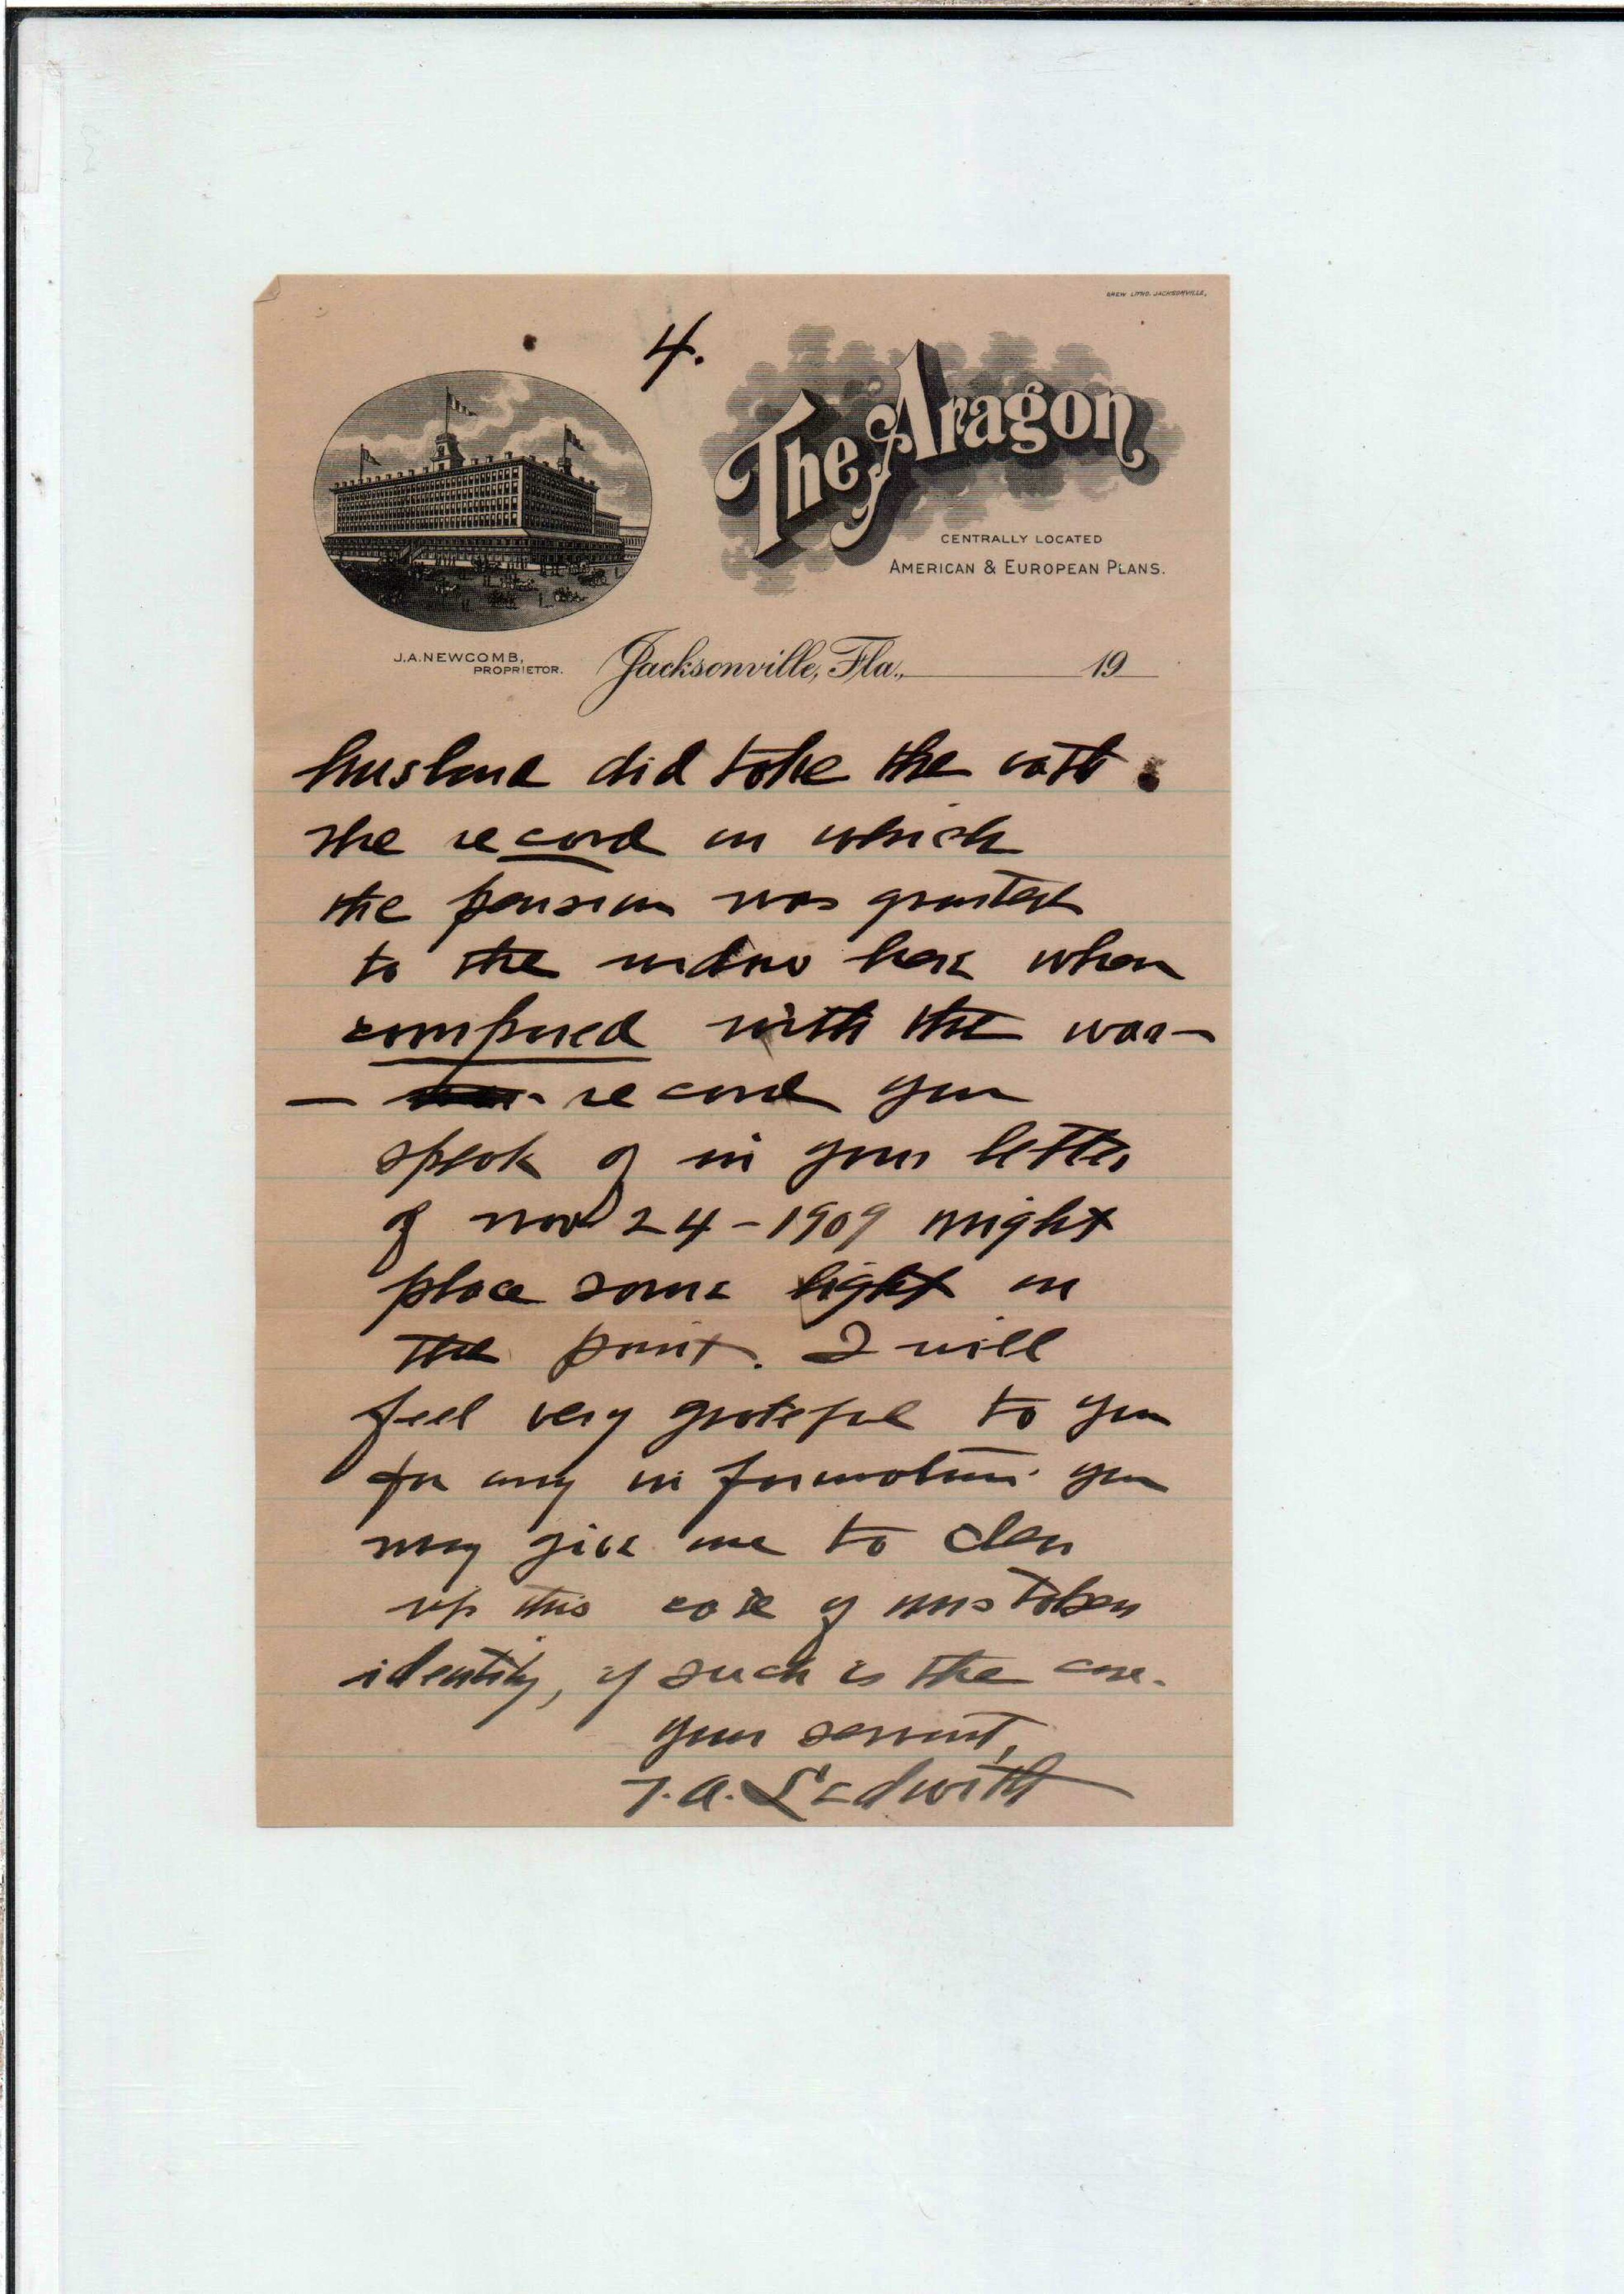 DREW LITHO. JACKSONVILLE,
4.
The Aragon
CENTRALLY LOCATED
AMERICAN & EUROPEAN PLANS.
J.A. NEWCOMB,
PROPRIETOR.
Jacksonville, Fla., 19
husband did take the oath.
The record on which
the pension was granted
to the widow here when
compared with the war-
- record you
speak of in your letter
of Nov 24-1909 might
place some light on
the point. I will
feel very grateful to you
for any information you
may give me to clear
up this case of mistaken
identity, if such is the case.
your servant,
T.A. Ledwith